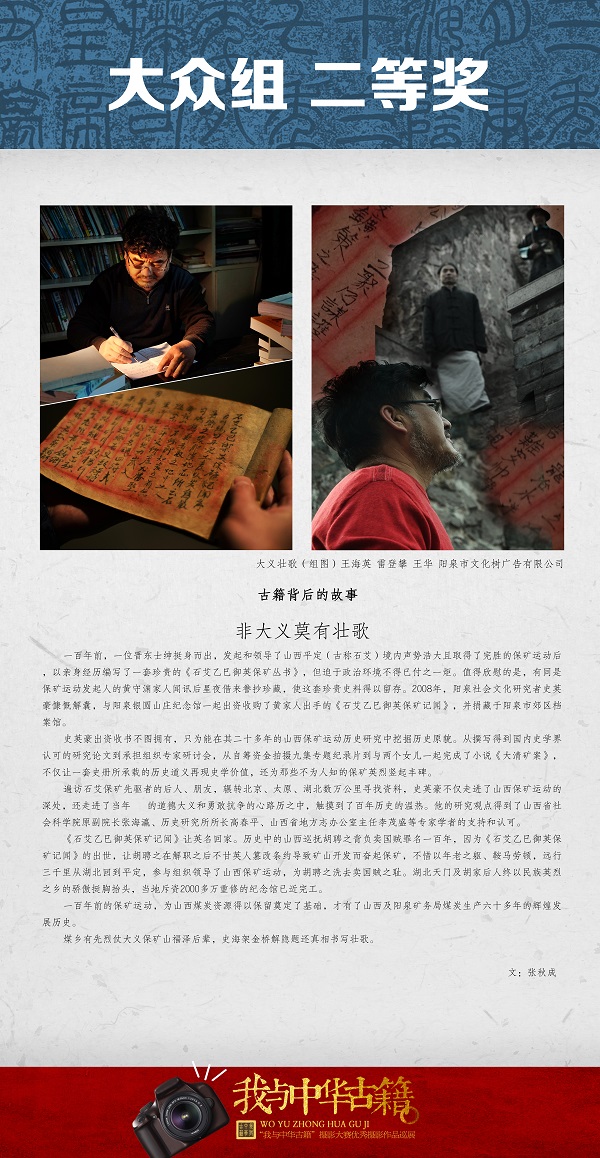 大众组 二等奖
大义壮歌（组图）王海英 雷登攀 王华 阳泉市文化树广告有限公司
古籍背后的故事
非大义莫有壮歌
一百年前，一位晋东士绅挺身而出，发起和领导了山西平定（古称石艾）境内声势浩大且取得了完胜的保矿运动后
，以亲身经历编写了一套珍贵的《石艾乙巳御英保矿丛书》，但迫于政治环境不得已付之一炬。值得欣慰的是，有同是
保矿运动发起人的黄守渊家人闻讯后星夜借来誊抄珍藏，使这套珍贵史料得以留存。2008年，阳泉社会文化研究者史英
豪慷慨解囊，与阳泉银圆山庄纪念馆一起出资收购了黄家人出手的《石艾乙巳御英保矿记闻》，并捐藏于阳泉市郊区档
案馆。
史英豪出资收书不图拥有，只为能在其二十多年的山西保矿运动历史研究中挖掘历史原貌。从撰写得到国内史学界
认可的研究论文到承担组织专家研讨会，从自筹资金拍摄九集专题纪录片到与两个女儿一起完成了小说《大清矿案》，
不仅让一套史册所承载的历史道义再现史学价值，还为那些不为人知的保矿英烈竖起丰碑。
遍访石艾保矿先驱者的后人、朋友，辗转北京、太原、湖北数万公里寻找资料，史英豪不仅走进了山西保矿运动的
深处，还走进了当年 的道德大义和勇敢抗争的心路历之中，触摸到了百年历史的温热。他的研究观点得到了山西省社
会科学院原副院长张海瀛、历史研究所所长高春平、山西省地方志办公室主任李茂盛等专家学者的支持和认可。
《石艾乙巳御英保矿记闻》让英名回家。历史中的山西巡抚胡聘之背负卖国贼罪名一百年，因为《石艾乙巳御英保
矿记闻》的出世，让胡聘之在解职之后不甘英人篡改条约导致矿山开发而奋起保矿，不惜以年老之躯、鞍马劳顿，远行
三千里从湖北回到平定，参与组织领导了山西保矿运动，为胡聘之洗去卖国贼之耻。湖北天门及胡家后人终以民族英烈
之乡的骄傲挺胸抬头，当地斥资2000多万重修的纪念馆已近完工。
一百年前的保矿运动，为山西煤炭资源得以保留奠定了基础，才有了山西及阳泉矿务局煤炭生产六十多年的辉煌发
展历史。
煤乡有先烈仗大义保矿山福泽后辈，史海架金桥解隐题还真相书写壮歌。
文：张秋成
我与中华古籍
WO YU ZHONG HUA GU JI
“我与中华古籍”摄影大赛优秀摄影作品巡展